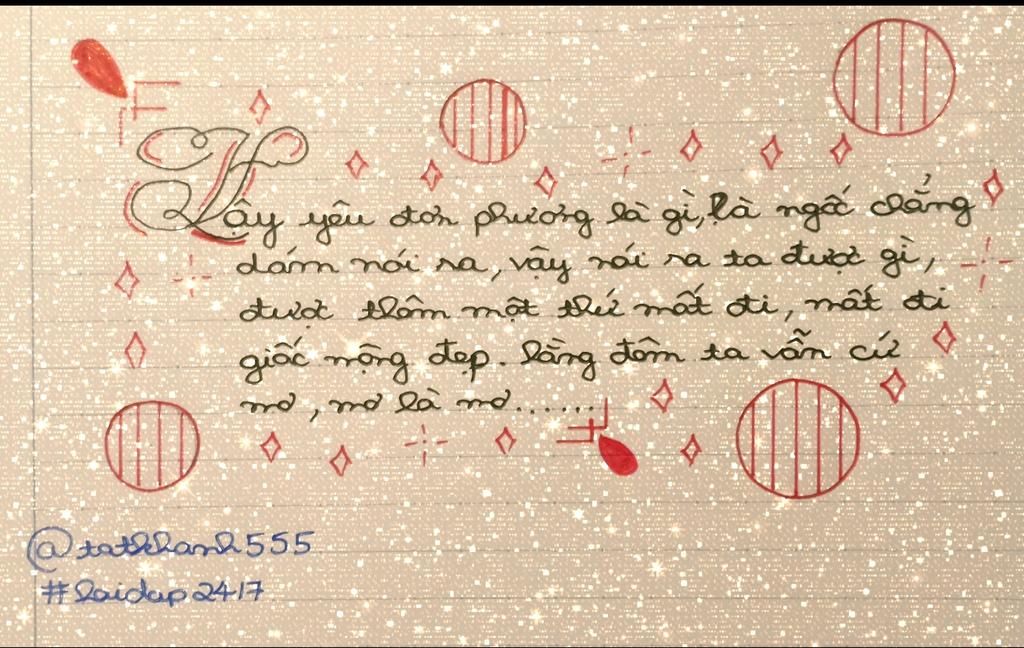 Vậy yêu đơn phương là gì, là ngốc chẳng
dám nói ra, vậy nói ra ta được gì,
được thêm một thứ mất đi, mất đi
giấc mộng đẹp. hằng đêm ta vẫn cứ
mơ, mơ là mơ......
@tatkhanh555
#laidap2417